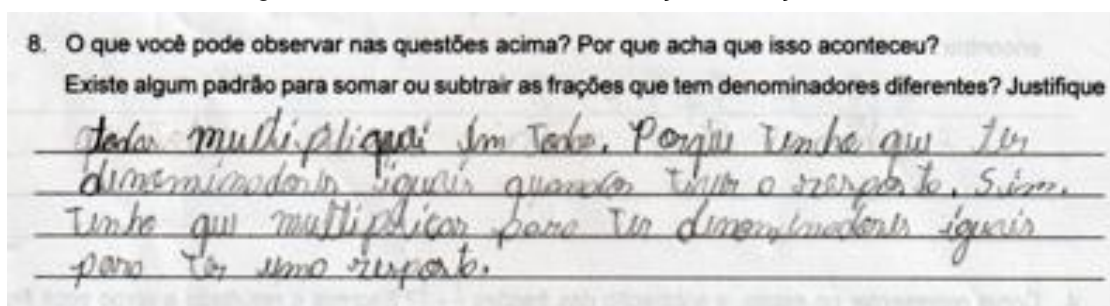 8. O que você pode observar nas questões acima? Por que acha que isso aconteceu?
Existe algum padrão para somar ou subtrair as frações que tem denominadores diferentes? Justifique
multipliquei em todo. Porque tenho que ter
denominadores iguais quando tiver a resposta. Sim.
Tenho que multiplicar para ter denominadores iguais
para ter uma resposta.